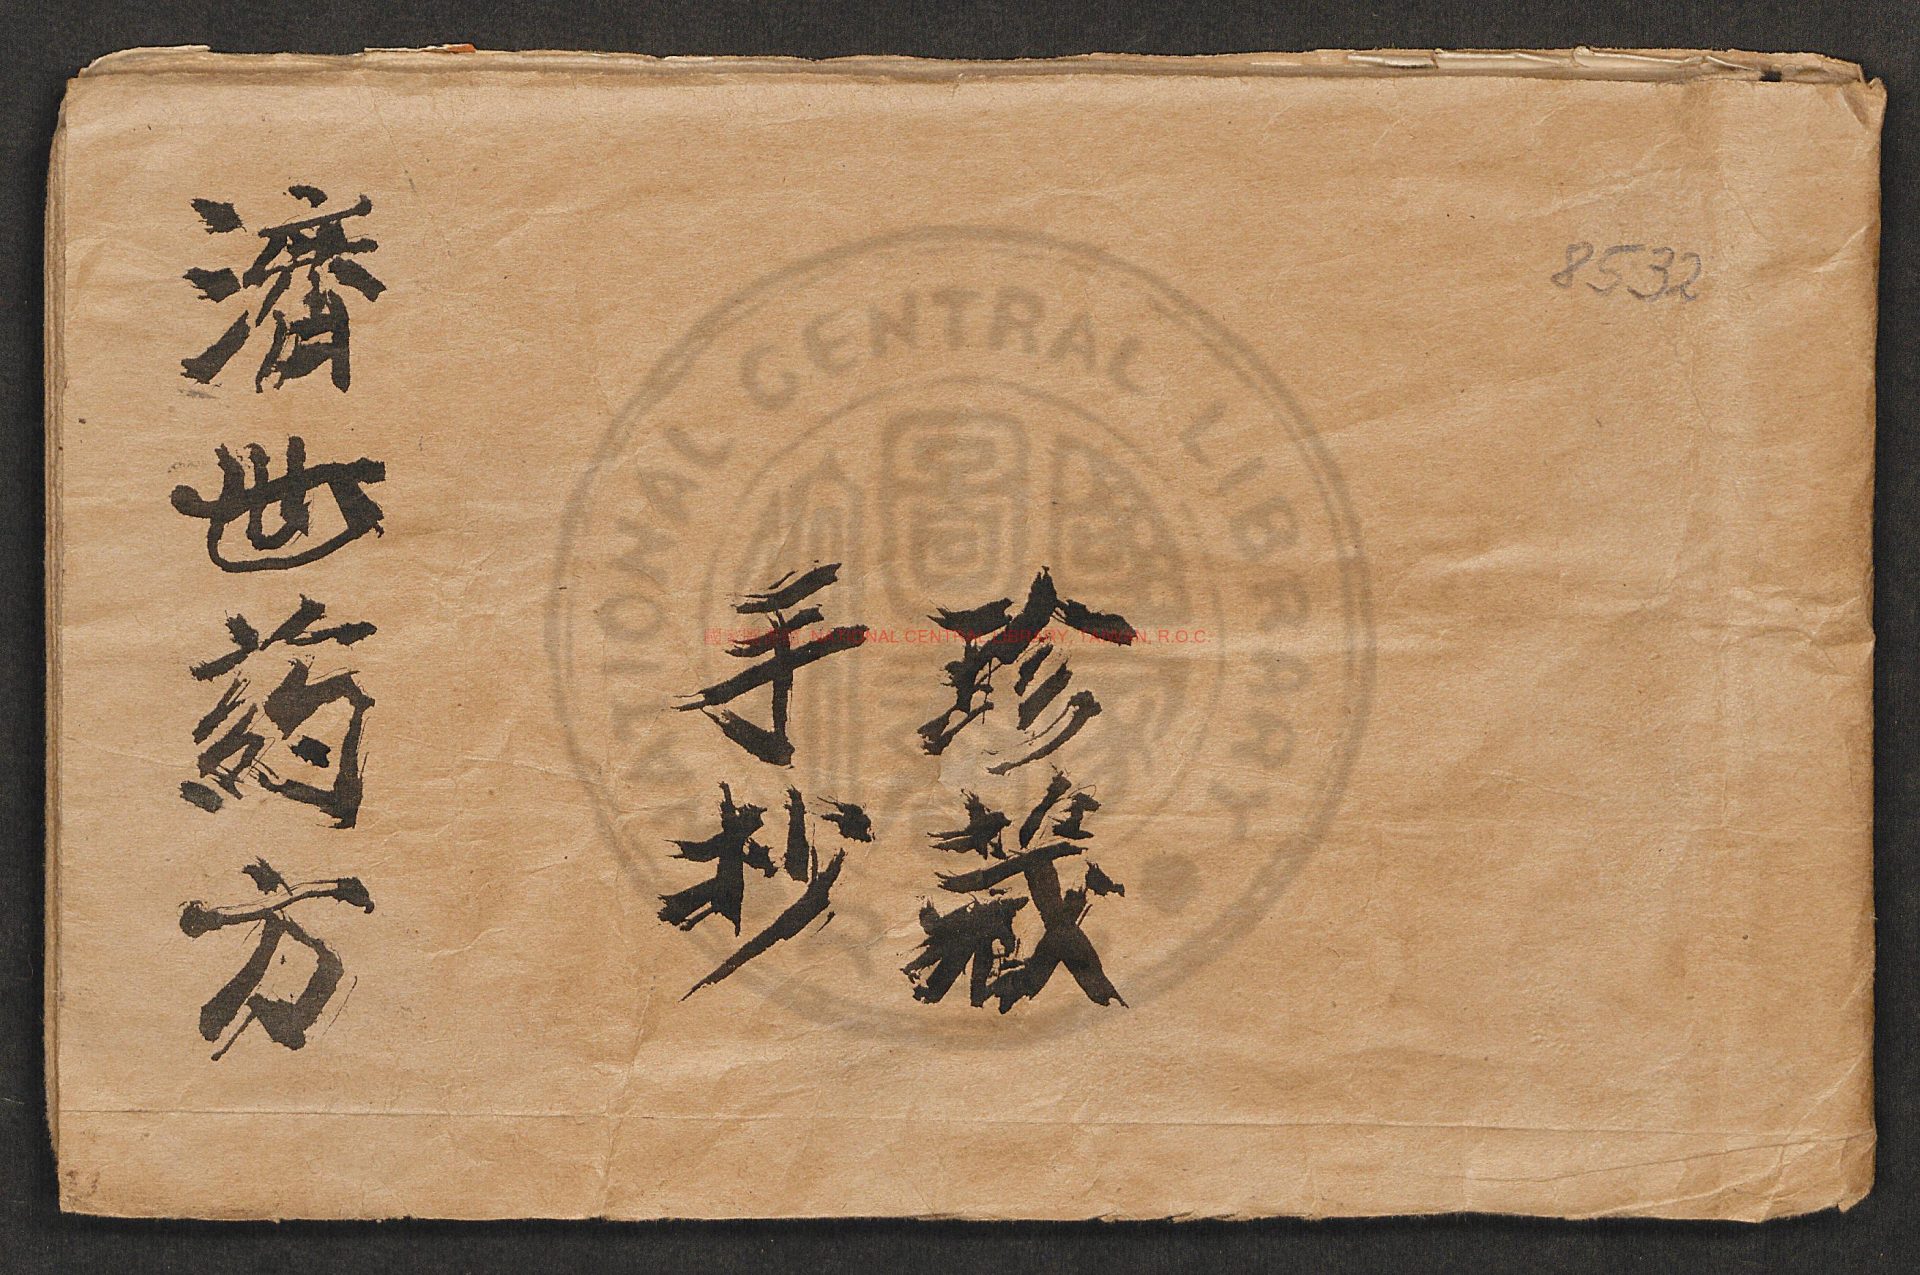 8532
珍藏
手抄
濟世葯方
NATIONAL CENTRAL LIBRARY
國家圖書館, NATIONAL CENTRAL LIBRARY, TAIWAN, R.O.C.